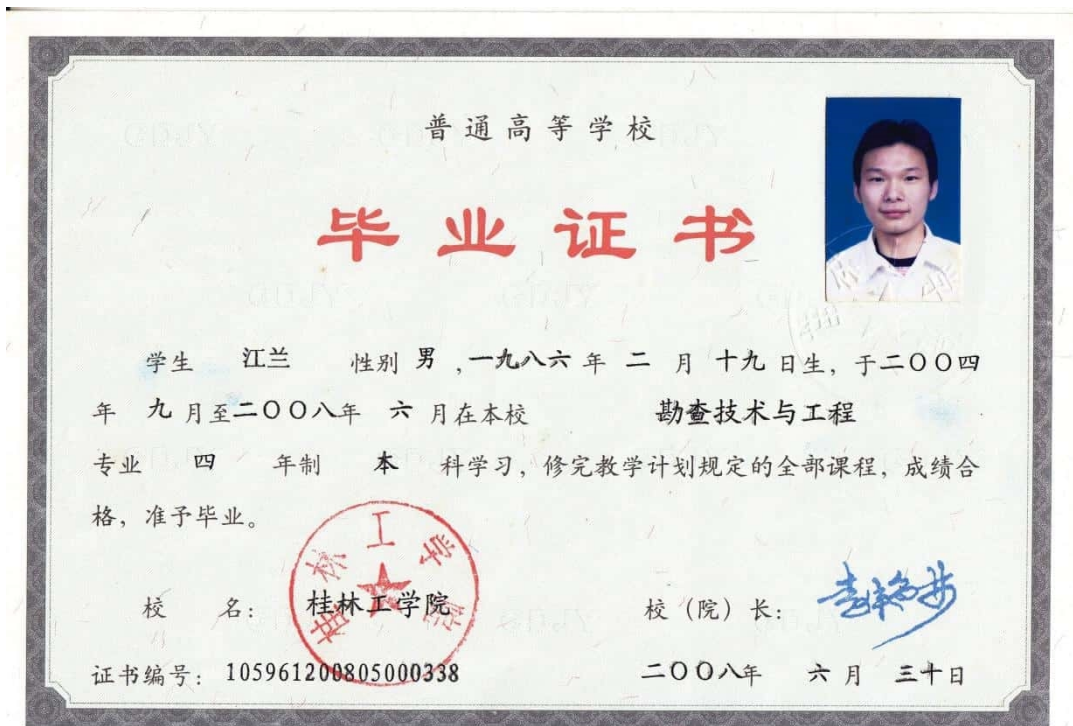 普通高等学校
毕业证书
学生 江兰 性别 男 ,一九八六 年 二 月 十九 日生，于二〇〇四
年 九 月至二〇〇八年 六 月在本校 勘查技术与工程
专业 四 年制 本 科学习，修完教学计划规定的全部课程，成绩合
格，准予毕业。
桂林工学院
校 名： 桂林工学院 校（院）长：
证书编号：105961200805000338 二〇〇八年 六 月 三十日